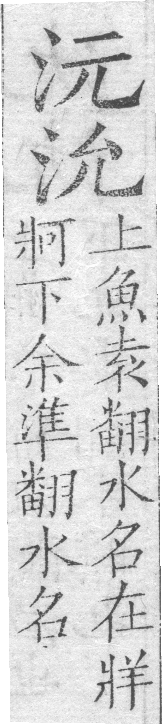 沅沇
上魚袁翻水名在牂
牁下余準翻水名